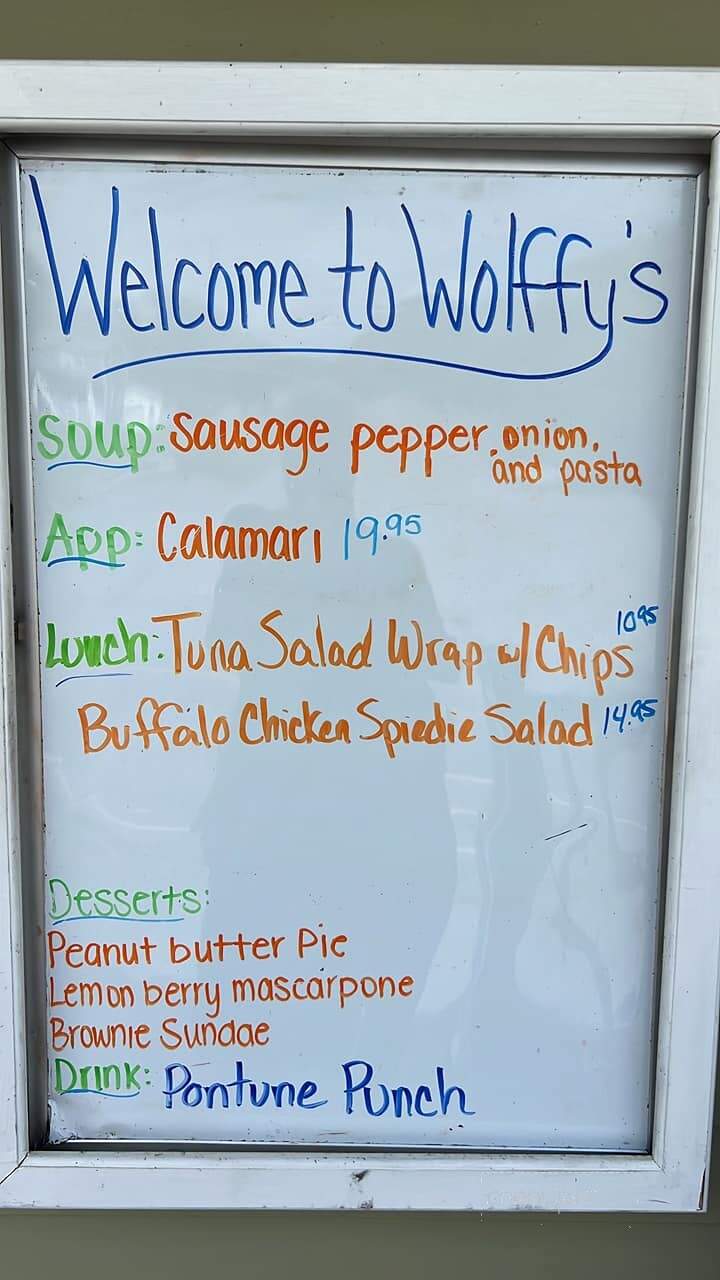 Welcome to Wolffy's
Soup: Sausage pepper, onion,
and pasta
App: Calamari 19.95
Lunch: Tuna Salad Wrap w/ Chips 10.95
Buffalo Chicken Spiedie Salad 14.95
Desserts:
Peanut butter Pie
Lemon berry mascarpone
Brownie Sundae
Drink: Pontune Punch